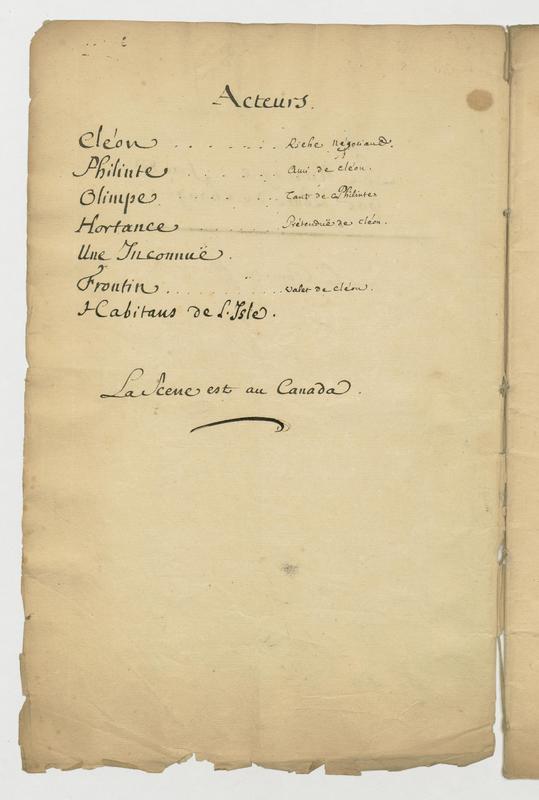 Acteurs.
Cléon . . . . . . . Riche Négociand.
Philinte . . . . . . Ami de Cléon.
Olimpe . . . . . . . Tant de Philinte
Hortance . . . . . . Prétenduë de Cléon.
Une Inconnuë.
Frontin . . . . . . . valet de Cléon.
Habitans de L'Isle.
La Scene est au Canada.